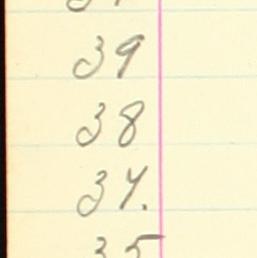 39
38
34.
35